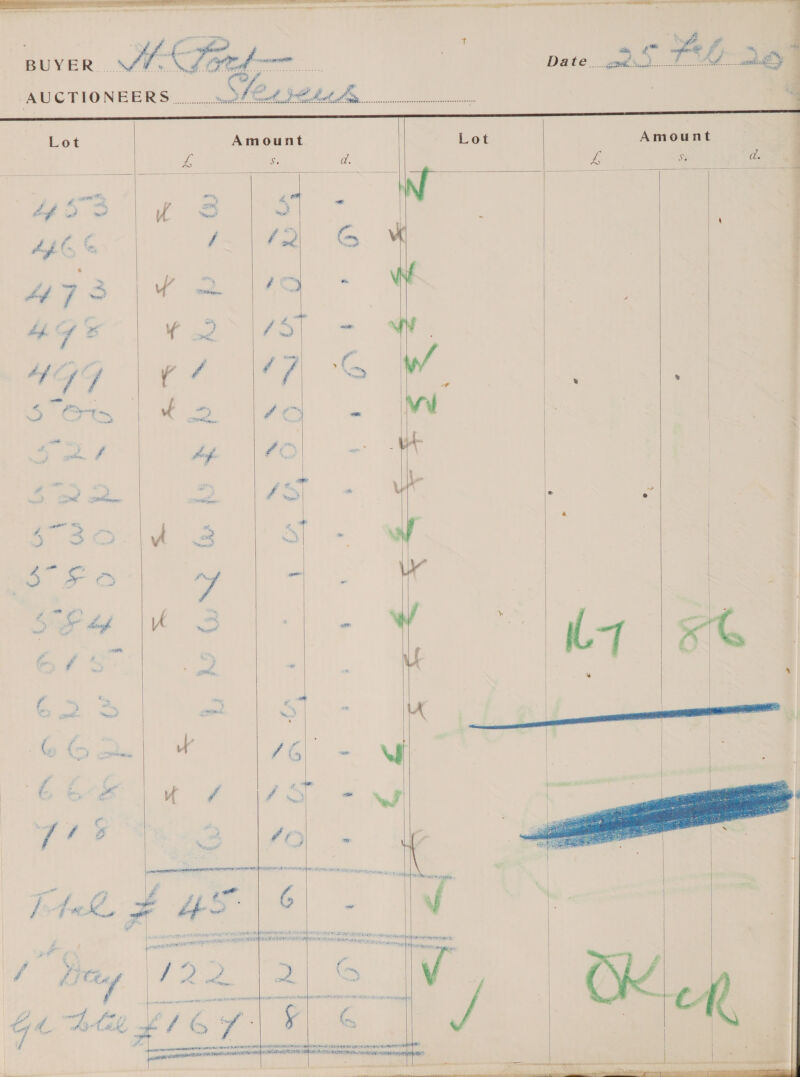 BUYER H. Port Date 25 Feb 20
AUCTIONEERS Stevens
Lot Amount Lot Amount
£ s. d. £ s. d.
453 3 5 - W
466 1 12 6
473 2 10 - W
498 2 15 - W
499 1 17 6 W
500 2 10 - W
521 4 10 -
522 2 15 -
530 3 5 - W
580 7 - -
584 3 - - W
615 2 - -
623 2 5 -
662 16 -
668 1 15 -
718 3 10 -
167 8 6
Total £ 45 6 - ✓
1st Day 122 2 6 ✓
Gd Total £167 8 6 ✓
OK CR